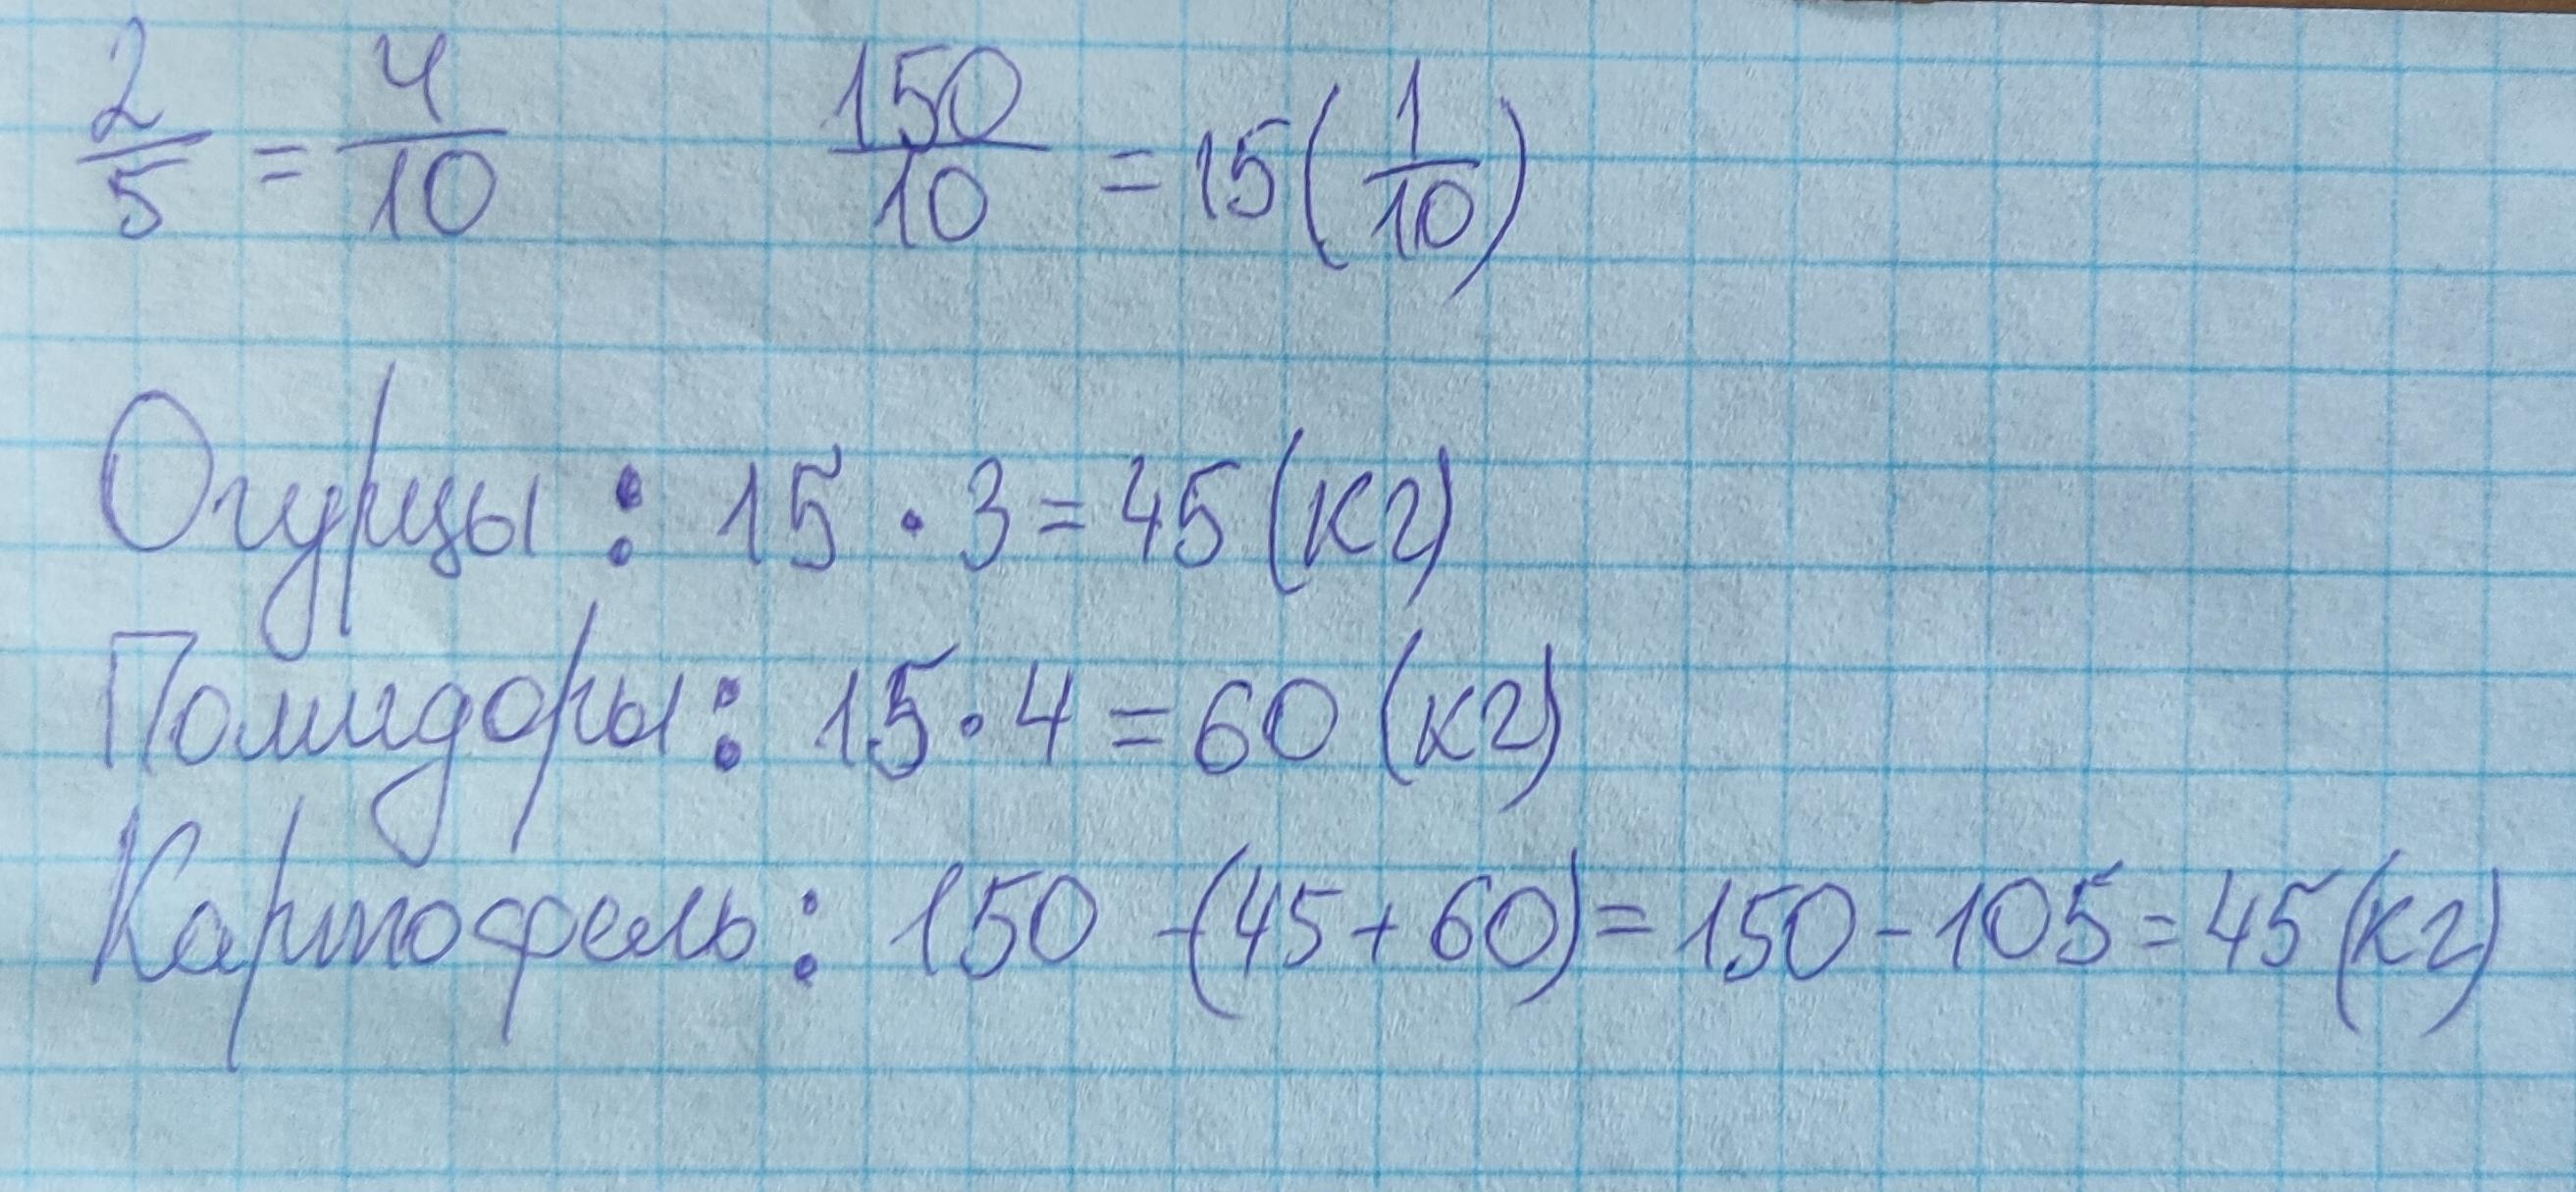 2/5 = 4/10 150/10 = 15(1/10)
Огурцы: 15 · 3 = 45 (кг)
Помидоры: 15 · 4 = 60 (кг)
Картофель: 150 - (45 + 60) = 150 - 105 = 45 (кг)